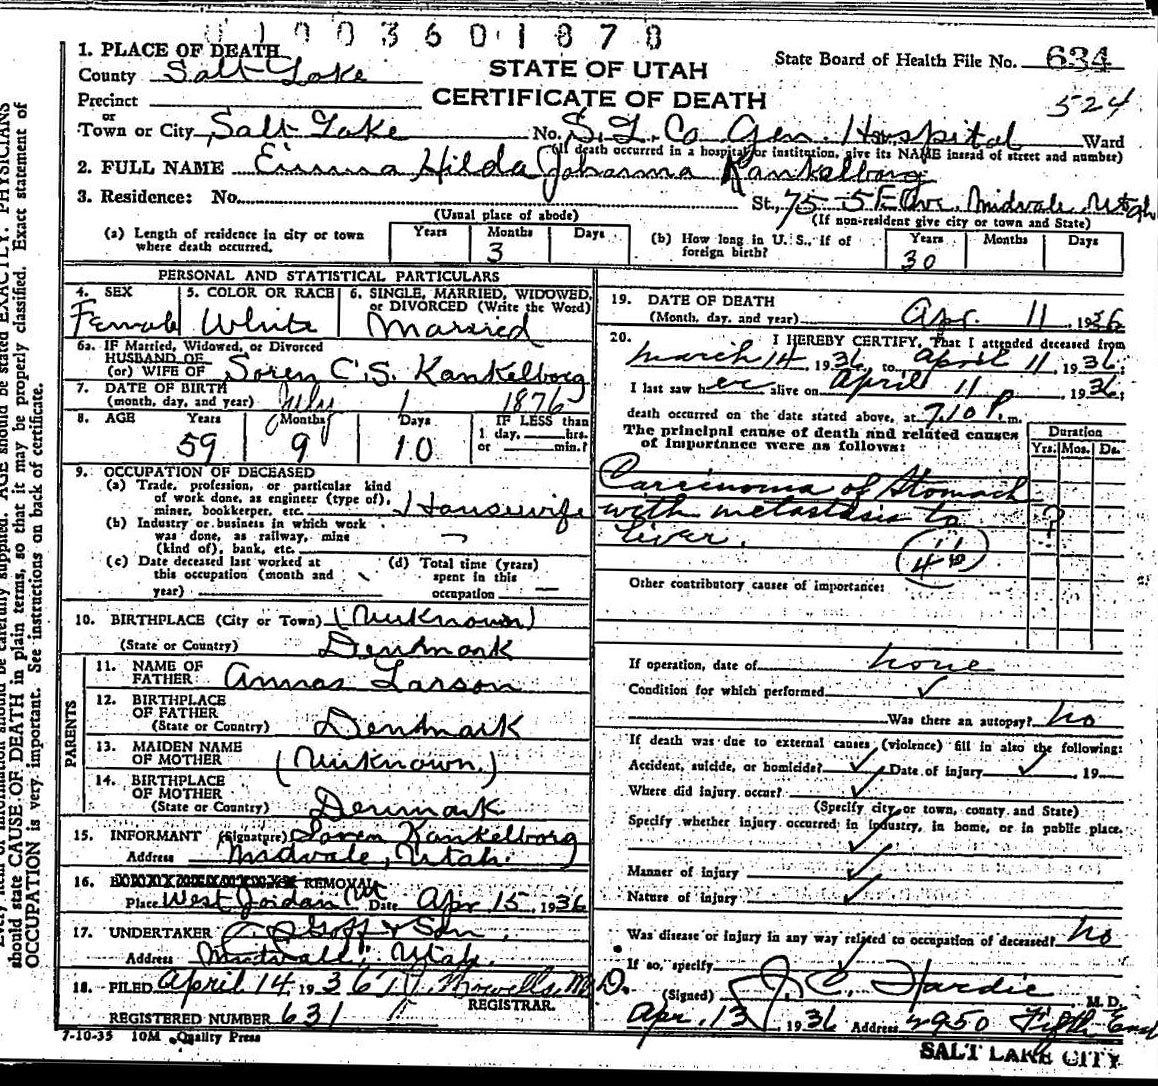 0 1 0 0 3 6 0 1 8 7 8
1. PLACE OF DEATH
County Salt Lake
STATE OF UTAH
CERTIFICATE OF DEATH
State Board of Health File No. 634
524
Precinct
or
Town or City Salt Lake No. S. L. Co. Gen. Hospital Ward
(If death occurred in a hospital or institution, give its NAME instead of street and number)
2. FULL NAME Emma Hilda Johanna Kankelborg
3. Residence: No. St., 75 - 5 E Ave. Midvale Utah
(Usual place of abode) (If non-resident give city or town and State)
(a) Length of residence in city or town where death occurred. Years Months 3 Days
(b) How long in U. S., if of foreign birth? Years 30 Months Days
PERSONAL AND STATISTICAL PARTICULARS
4. SEX Female
5. COLOR OR RACE White
6. SINGLE, MARRIED, WIDOWED, or DIVORCED (Write the Word) Married
6a. IF Married, Widowed, or Divorced
HUSBAND OF
(or) WIFE OF Soren C. S. Kankelborg
7. DATE OF BIRTH
(month, day, and year) July 1 1876
8. AGE Years 59 Months 9 Days 10 IF LESS than 1 day, hrs. or min.?
9. OCCUPATION OF DECEASED
(a) Trade, profession, or particular kind
of work done, as engineer (type of),
miner, bookkeeper, etc. Housewife
(b) Industry or business in which work
was done, as railway, mine
(kind of), bank, etc. —
(c) Date deceased last worked at
this occupation (month and
year)
(d) Total time (years)
spent in this
occupation —
10. BIRTHPLACE (City or Town) (Unknown)
(State or Country) Denmark
PARENTS
11. NAME OF
FATHER Larson
12. BIRTHPLACE
OF FATHER
(State or Country) Denmark
13. MAIDEN NAME
OF MOTHER (Unknown.)
14. BIRTHPLACE
OF MOTHER
(State or Country) Denmark
15. INFORMANT (Signature) Soren Kankelborg
Address Midvale, Utah.
16. REMOVAL
Place West Jordan Ut Date Apr 15 1936
17. UNDERTAKER Goff & Son,
Address Midvale, Utah.
18. FILED April 14, 1936 M.D.
REGISTRAR.
REGISTERED NUMBER 631
7-10-35 10M Quality Press
19. DATE OF DEATH
(Month, day, and year) Apr. 11, 1936
20. I HEREBY CERTIFY, That I attended deceased from
March 14, 1936, to April 11, 1936;
I last saw her alive on April 11, 1936;
death occurred on the date stated above, at 7.10 P. m.
The principal cause of death and related causes
of importance were as follows:
Duration
Yrs. Mos. Ds.
Carcinoma of Stomach
with metastasis to ?
liver.
Other contributory causes of importance:
If operation, date of none
Condition for which performed ✓
Was there an autopsy? No
If death was due to external causes (violence) fill in also the following:
Accident, suicide, or homicide? ✓ Date of injury ✓, 19
Where did injury occur? ✓
(Specify city or town, county and State)
Specify whether injury occurred in industry, in home, or in public place.
✓
Manner of injury ✓
Nature of injury ✓
Was disease or injury in any way related to occupation of deceased? No
If so, specify
(Signed) J. C. Hardie, M. D.
Apr. 13, 1936 Address 2950 Fifth East
SALT LAKE CITY
should state CAUSE OF DEATH in plain terms, so that it may be properly classified. Exact statement of
OCCUPATION is very important. See instructions on back of certificate.